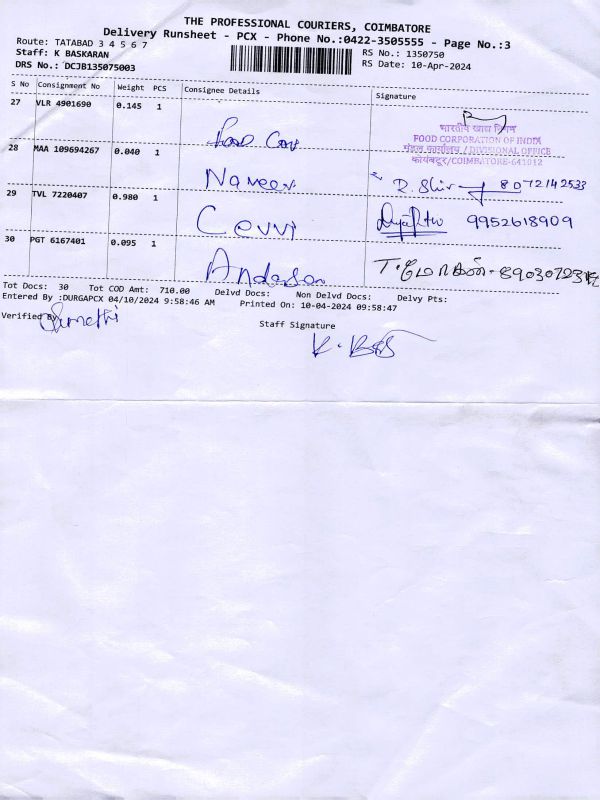 THE PROFESSIONAL COURIERS, COIMBATORE
Delivery Runsheet - PCX - Phone No.:0422-3505555 - Page No.:3
Route: TATABAD 3 4 5 6 7
RS No.: 1350750
Staff: K BASKARAN
RS Date: 10-Apr-2024
DRS No.: DCJB135075003
S No Consignment No Weight PCS Consignee Details Signature
27 VLR 4901690 0.145 1
भारतीय खाद्य निगम
FOOD CORPORATION OF INDIA
मंडल कार्यालय / DIVISIONAL OFFICE
कोयंबटूर/COIMBATORE-641012
Food Corp
28 MAA 109694267 0.040 1
Naveen R. Shiv 8072142533
29 TVL 7220407 0.980 1
Cevvi 9952618909
30 PGT 6167401 0.095 1
Anderson
Tot Docs: 30 Tot COD Amt: 710.00 Delvd Docs: Non Delvd Docs: Delvy Pts:
Entered By :DURGAPCX 04/10/2024 9:58:46 AM Printed On: 10-04-2024 09:58:47
Verified By
Staff Signature